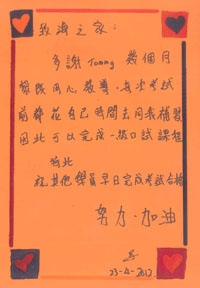 致海之家：
多謝 Tommy 幾個月
解既用心教導，每次考試
前都花自己時間去同我補習
因此可以完成一級口試課程
特此
祝其他學員早日完成考試合格
努力·加油
23-4-2012